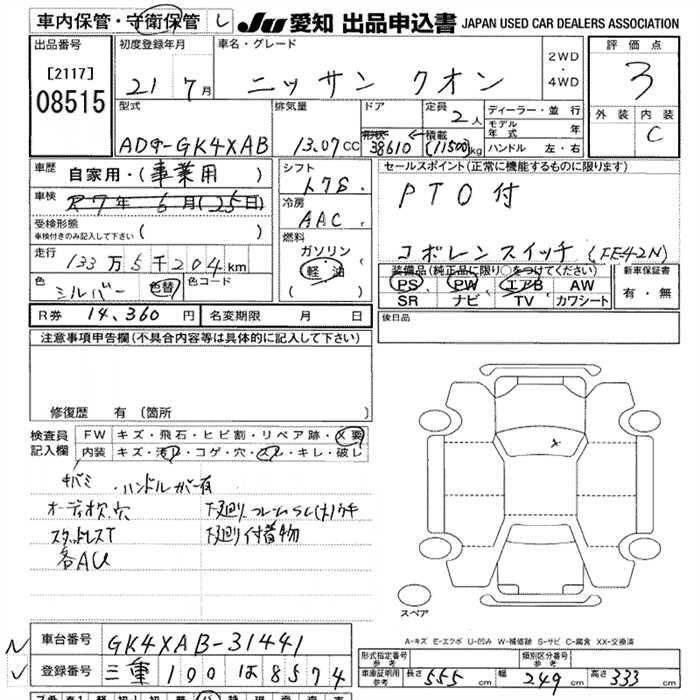 車内保管・守衛保管 し
JU 愛知 出品申込書 JAPAN USED CAR DEALERS ASSOCIATION
出品番号
[2117]
08515
初度登録年月
21年 7月
車名・グレード
ニッサン クオン
2WD
・
4WD
評価点
3
外装 内装
C
型式
ADG-GK4XAB
排気量
13.07cc
ドア
形状
38610
定員
2人
積載
(11500)kg
ディーラー・並行
モデル年式 年
ハンドル 左・右
車歴
自家用・(事業用)
車検
R7年 6月(25日)
受検形態
車検付きのみ記入して下さい ( )
走行
133万5千204km
色
シルバー 色替
色コード
シフト
冷房
AAC
燃料
ガソリン
軽油
( )
セールスポイント(正常に機能するものに限ります)
PTO付
コボレンスイッチ (FE42N)
装備品(純正品に限り○をつけてください)
PS PW エアB AW
SR ナビ TV カワシート
新車保証書
有・無
R券 14,360円
名変期限 月 日
後日品
注意事項申告欄(不具合内容等は具体的に記入して下さい)
修復歴 有(箇所 )
検査員
記入欄
FW キズ・飛石・ヒビ割・リペア跡・X要
内装 キズ・汚レ・コゲ・穴・スレ・キレ・破レ
キバミ ・ハンドルカバー有
オーディオ欠.穴
スタッドレスT 下廻り付着物
各AU
スペア
A-キズ E-エクボ U-凹み W-補修跡 S-サビ C-腐食 XX-交換済
車台番号 GK4XAB-31441
登録番号 三重100は8574
型式指定番号
参考
類別区分番号
参考
車庫証明用
参考
長さ 555cm 幅 249cm 高さ 333cm